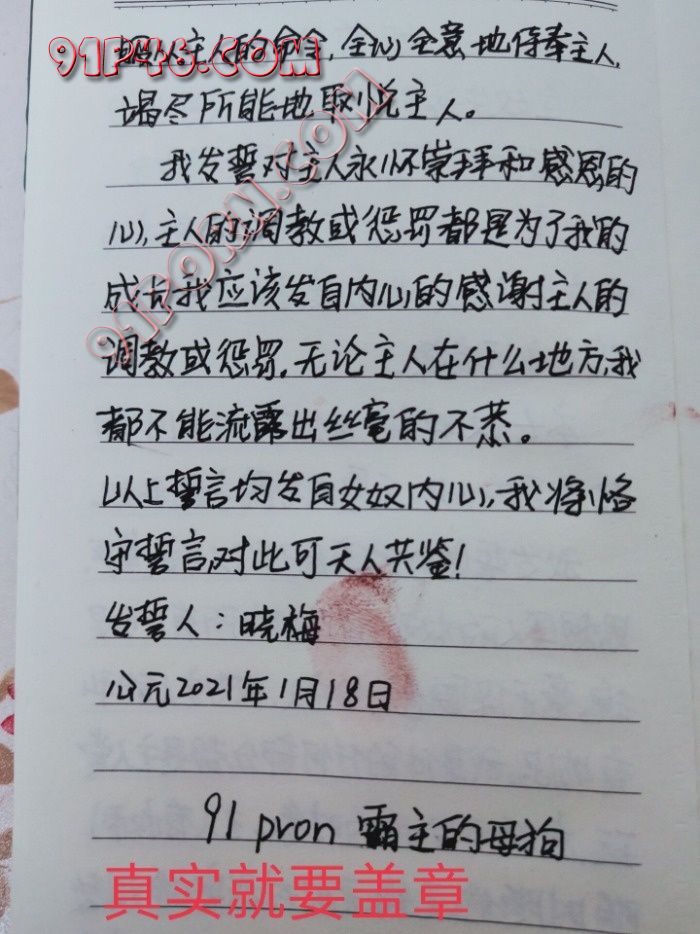 91P46.COM
服从主人的命令,全心全意地侍奉主人,
竭尽所能地取悦主人。
91PORN.COM
我发誓对主人永怀崇拜和感恩的
心,主人的调教或惩罚都是为了我的
成长我应该发自内心的感谢主人的
调教或惩罚,无论主人在什么地方,我
都不能流露出丝毫的不恭。
以上誓言均发自女奴内心,我将恪
守誓言,对此可天人共鉴!
发誓人:晓梅
公元2021年1月18日
91 pron 霸主的母狗
真实就要盖章